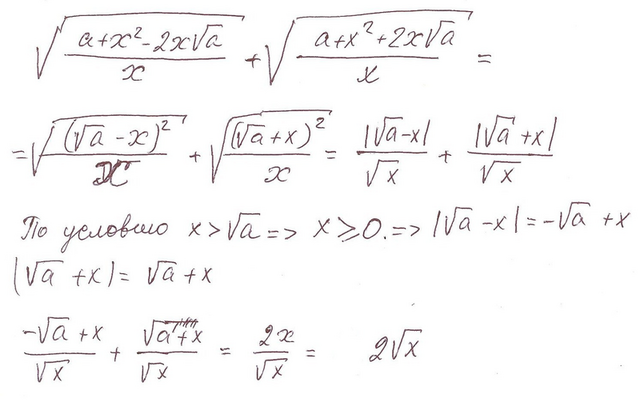 √((a+x²-2x√a)/x) + √((a+x²+2x√a)/x) =
= √((√a-x)²/x) + √((√a+x)²/x) = |√a-x|/√x + |√a+x|/√x
По условию x>√a => x⩾0. => |√a-x|=-√a+x
|√a+x|= √a+x
(-√a+x)/√x + (√a+x)/√x = 2x/√x = 2√x